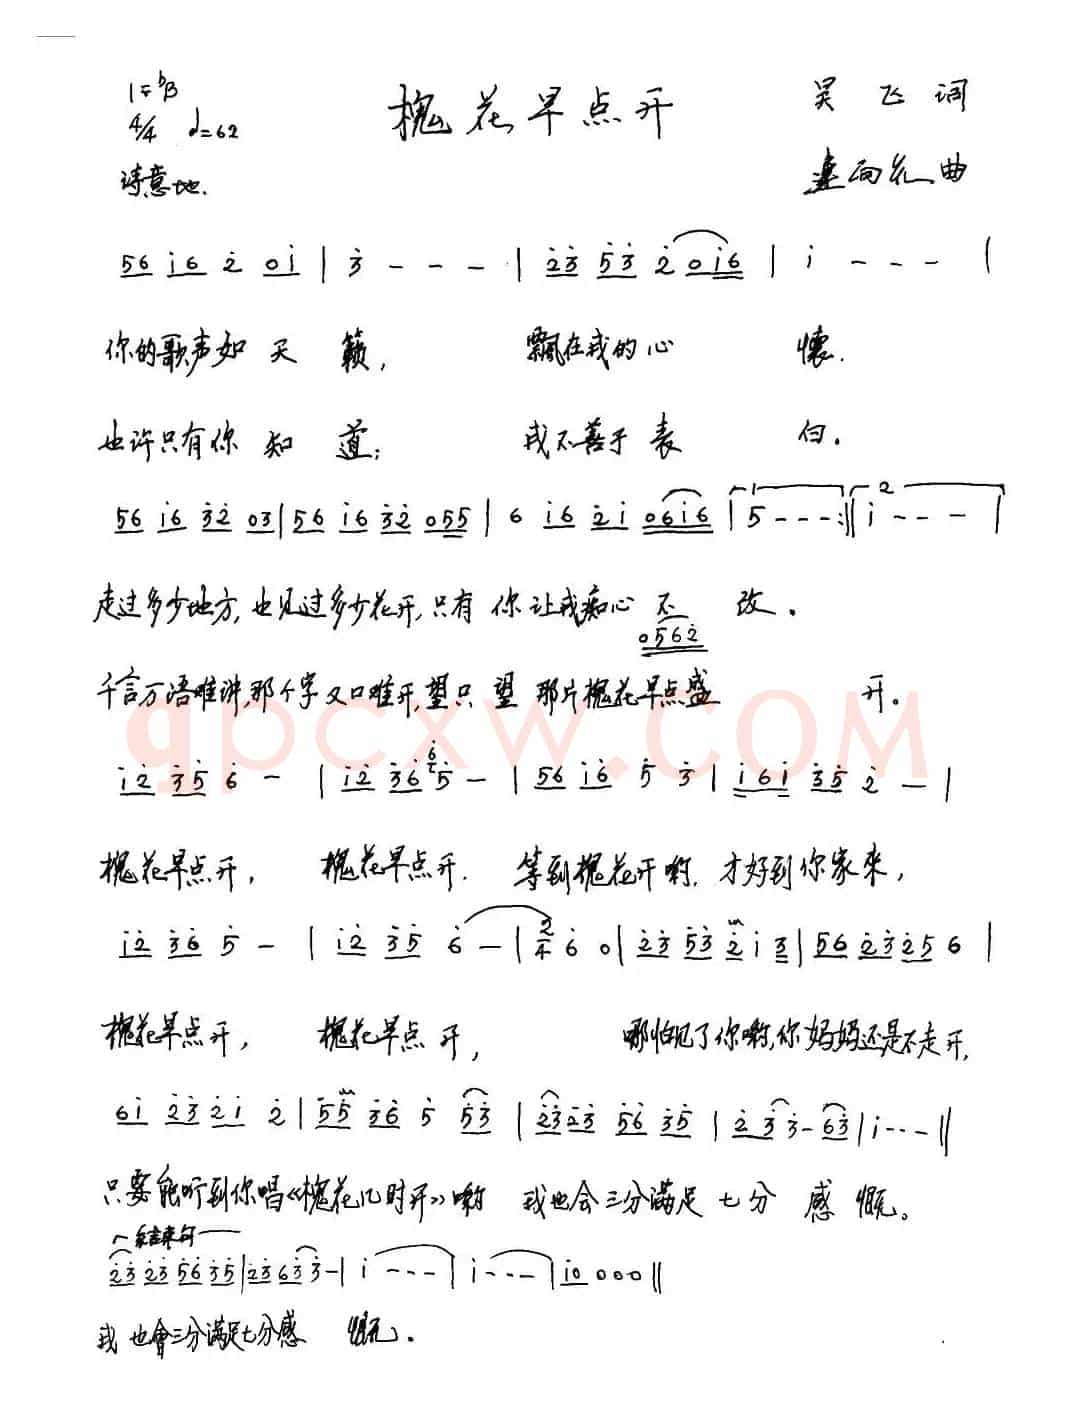 1=♭B
槐花早点开
吴飞词
4/4 ♩=62
诗意地.
向红曲
5 6 i 6 2 0 i | 3 - - - | 2 3 5 3 2 0 i 6 | i - - - |
你的歌声如天籁, 飘在我的心怀.
也许只有你知道; 我不善于表白.
5 6 i 6 3 2 0 3 | 5 6 i 6 3 2 0 5 5 | 6 i 6 2 i 0 6 i 6 | 1 5 - - - :|| 2 i - - - |
走过多少地方,也见过多少花开,只有你让我痴心不改.
0 5 6 2
千言万语难讲,那个字又口难开,望只望那片槐花早点盛开.
gpcxw.COM
i 2 3 5 6 - | i 2 3 6 6 5 - | 5 6 i 6 5 3 | i 6 i 3 5 2 - |
槐花早点开, 槐花早点开. 等到槐花开哟,才好到你家来,
i 2 3 6 5 - | i 2 3 5 6 - | 2/4 6 0 | 2 3 5 3 2 i 3 | 5 6 2 3 2 5 6 |
槐花早点开, 槐花早点开, 哪怕见了你哟,你妈妈还是不走开,
6 i 2 3 2 i 2 | 5 5 3 6 5 5 3 | 2 3 2 3 5 6 3 5 | 2 3 3 - 6 3 | i - - - ||
只要能听到你唱《槐花几时开》哟 我也会三分满足七分感慨。
结束句
2 3 2 3 5 6 3 5 | 2 3 6 3 3 - | i - - - | i - - - | i 0 0 0 0 ||
我也會三分满足七分感慨.